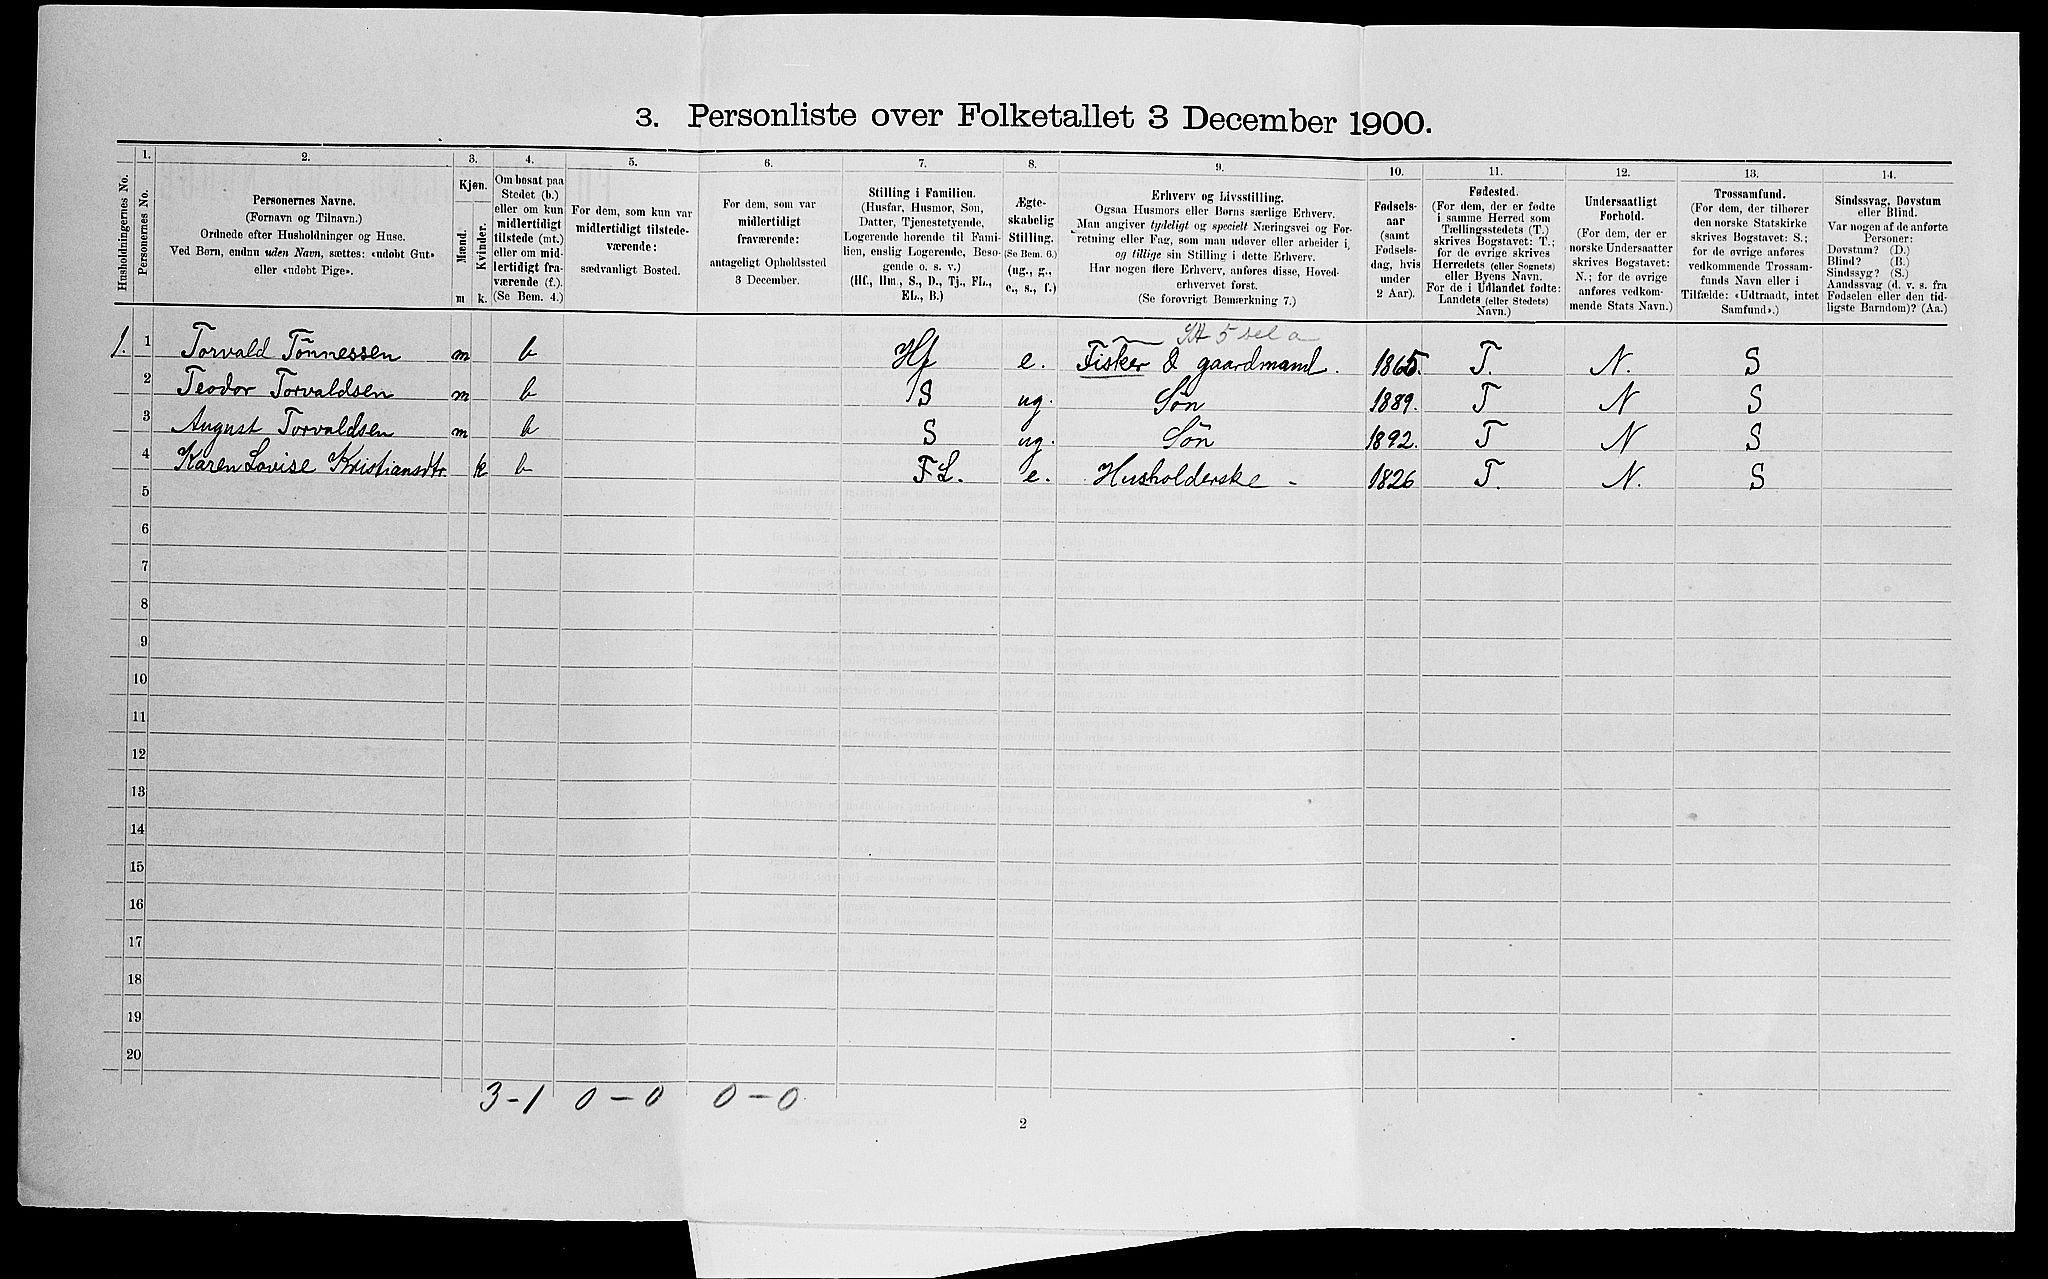 3. Personliste over Folketallet 3 December 1900.
Husholdningernes No.
1. Personernes No.
2. Personernes Navne.
(Fornavn og Tilnavn.)
Ordnede efter Husholdninger og Huse.
Ved Børn, endnu uden Navn, sættes: «udøbt Gut»
eller «udøbt Pige».
3. Kjøn.
Mænd. Kvinder.
m k.
4. Om bosat paa
Stedet (b.)
eller om kun
midlertidigt
tilstede (mt.)
eller om mid-
lertidigt fra-
værende (f.).
(Se Bem. 4.)
5. For dem, som kun var
midlertidigt tilstede-
værende:
sædvanligt Bosted.
6. For dem, som var
midlertidigt
fraværende:
antageligt Opholdssted
3 December.
7. Stilling i Familien.
(Husfar, Husmor, Søn,
Datter, Tjenestetyende,
Logerende hørende til Fami-
lien, enslig Logerende, Besø-
gende o. s. v.)
(Hf., Hm., S., D., Tj., FL.,
EL., B.)
8. Ægte-
skabelig
Stilling.
(Se Bem. 6.)
(ug., g.,
e., s., f.)
9. Erhverv og Livsstilling.
Ogsaa Husmors eller Børns særlige Erhverv.
Man angiver tydeligt og specielt Næringsvei og For-
retning eller Fag, som man udøver eller arbeider i,
og tillige sin Stilling i dette Erhverv.
Har nogen flere Erhverv, anføres disse, Hoved-
erhvervet først.
(Se forøvrigt Bemærkning 7.)
10. Fødsels-
aar
(samt
Fødsels-
dag, hvis
under
2 Aar).
11. Fødested.
(For dem, der er fødte
i samme Herred som
Tællingsstedets (T.)
skrives Bogstavet: T.;
for de øvrige skrives
Herredets (eller Sognets)
eller Byens Navn.
For de i Udlandet fødte:
Landets (eller Stedets)
Navn.)
12. Undersaatligt
Forhold.
(For dem, der er
norske Undersaatter
skrives Bogstavet:
N.; for de øvrige
anføres vedkom-
mende Stats Navn.)
13. Trossamfund.
(For dem, der tilhører
den norske Statskirke
skrives Bogstavet: S.;
for de øvrige anføres
vedkommende Trossam-
funds Navn eller i
Tilfælde: «Udtraadt, intet
Samfund».)
14. Sindssvag, Døvstum
eller Blind.
Var nogen af de anførte
Personer:
Døvstum? (D.)
Blind? (B.)
Sindssyg? (S.)
Aandssvag (d. v. s. fra
Fødselen eller den tid-
ligste Barndom)? (Aa.)
1. 1 Torvald Tönnessen m b Hf e. Fisker & gaardmand. 1865. T. N. S
2 Teodor Torvaldsen m b S ug. Sön 1889. T N S
3 August Torvaldsen m b S ug. Sön 1892. T N S
4 Karen Lovise Kristiansdtr. k b FL. e. Husholderske - 1826 T. N. S
5
6
7
8
9
10
11
12
13
14
15
16
17
18
19
20
3-1 0-0 0-0
2